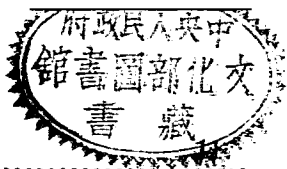 中央人民政府
文化部圖書館
藏書